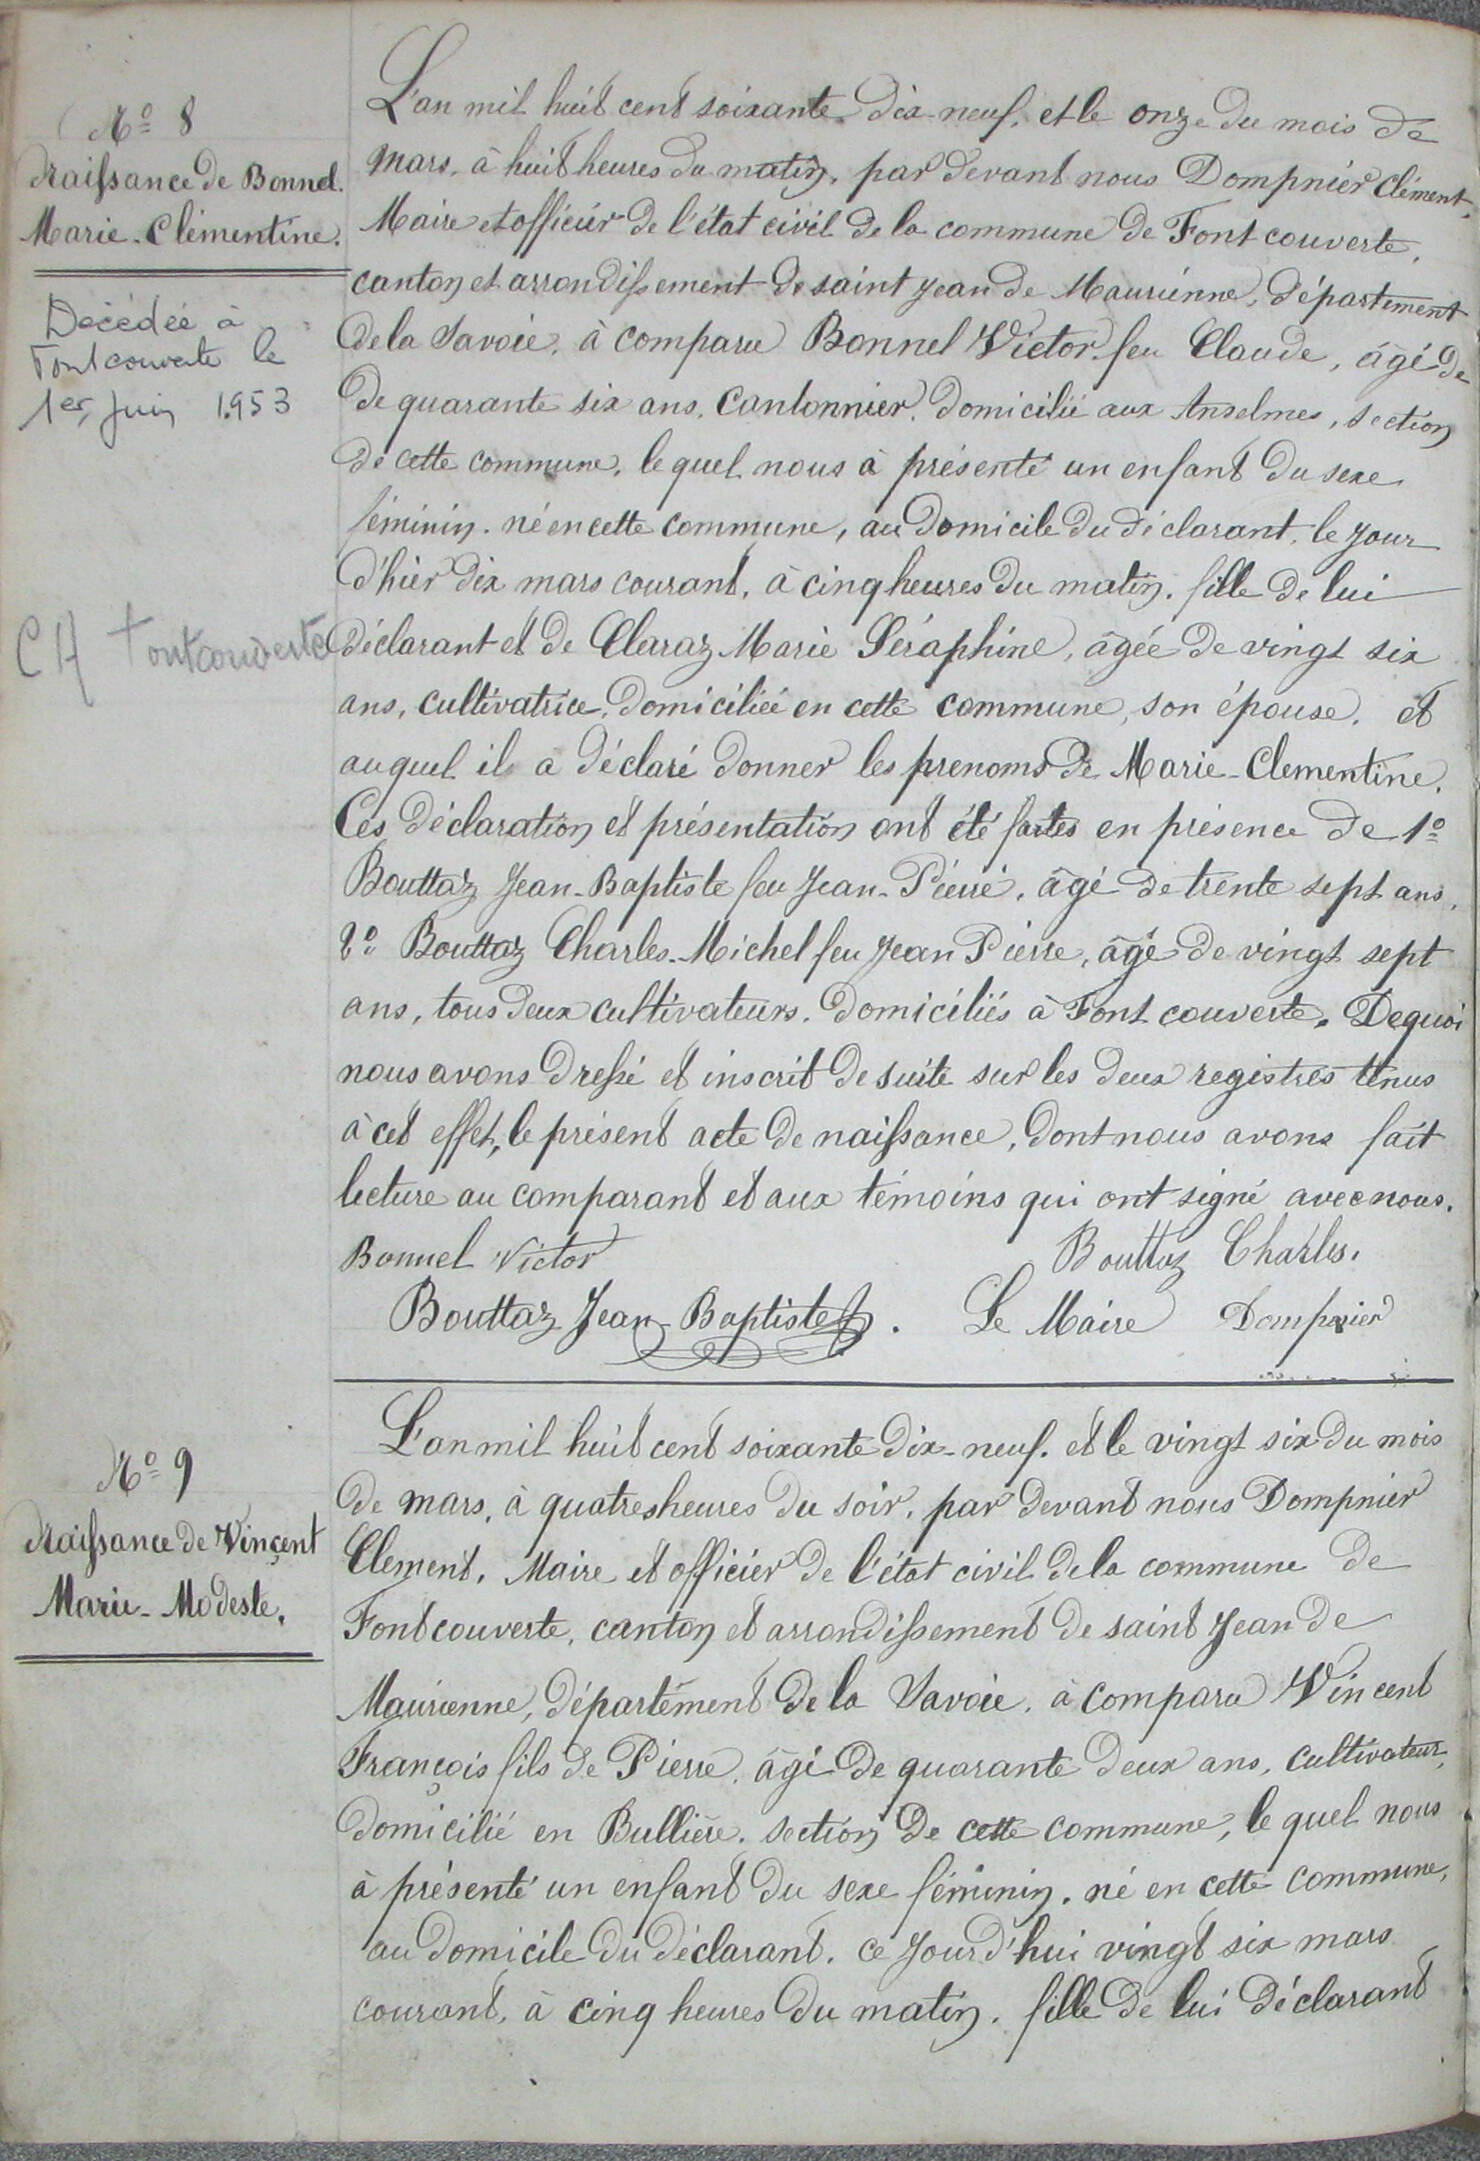 Nº 8
Naissance de Bonnel.
Marie-Clémentine.
Décédée à
Fontcouverte le
1er Juin 1953
CH Fontcouverte
L'an mil huit cent soixante dix-neuf, et le onze du mois de
mars, à huit heures du matin, par devant nous Dompnier Clément,
Maire et officier de l'état civil de la commune de Font couverte,
canton et arrondissement de saint Jean de Maurienne, département
de la Savoie, à comparu Bonnel Victor feu Claude, âgé de
de quarante six ans, cantonnier, domicilié aux Anselmes, section
de cette commune, le quel nous à présenté un enfant du sexe
féminin, né en cette commune, au domicile du déclarant, le jour
d'hier dix mars courant, à cinq heures du matin, fille de lui
déclarant et de Claraz Marie Séraphine, âgée de vingt six
ans, cultivatrice, domiciliée en cette commune, son épouse, et
auquel il a déclaré donner les prenoms de Marie-Clementine.
Ces déclaration et présentation ont été faites en présence de 1º
Bouttaz Jean-Baptiste feu Jean-Pierre, âgé de trente sept ans,
2º Bouttaz Charles-Michel feu Jean Pierre, âgé de vingt sept
ans, tous deux cultivateurs, domiciliés à Font couverte. Dequoi
nous avons dressé et inscrit de suite sur les deux registres tenus
à cet effet, le présent acte de naissance, dont nous avons fait
lecture au comparant et aux témoins qui ont signé avec nous.
Bonnel Victor Bouttaz Charles.
Bouttaz Jean-Baptiste. Le Maire Dompnier
Nº 9
Naissance de Vinçent
Marie-Modeste.
L'an mil huit cent soixante dix-neuf, et le vingt six du mois
de mars, à quatres heures du soir, par devant nous Dompnier
Clement, Maire et officier de l'état civil de la commune de
Font couverte, canton et arrondissement de saint Jean de
Maurienne, département de la Savoie, à comparu Vincent
François fils de Pierre, âgé de quarante deux ans, cultivateur,
domicilié en Bullière, section de cette commune, le quel nous
à présenté un enfant du sexe féminin, né en cette commune,
au domicile du déclarant, ce jourd'hui vingt six mars
courant, à cinq heures du matin, fille de lui déclarant